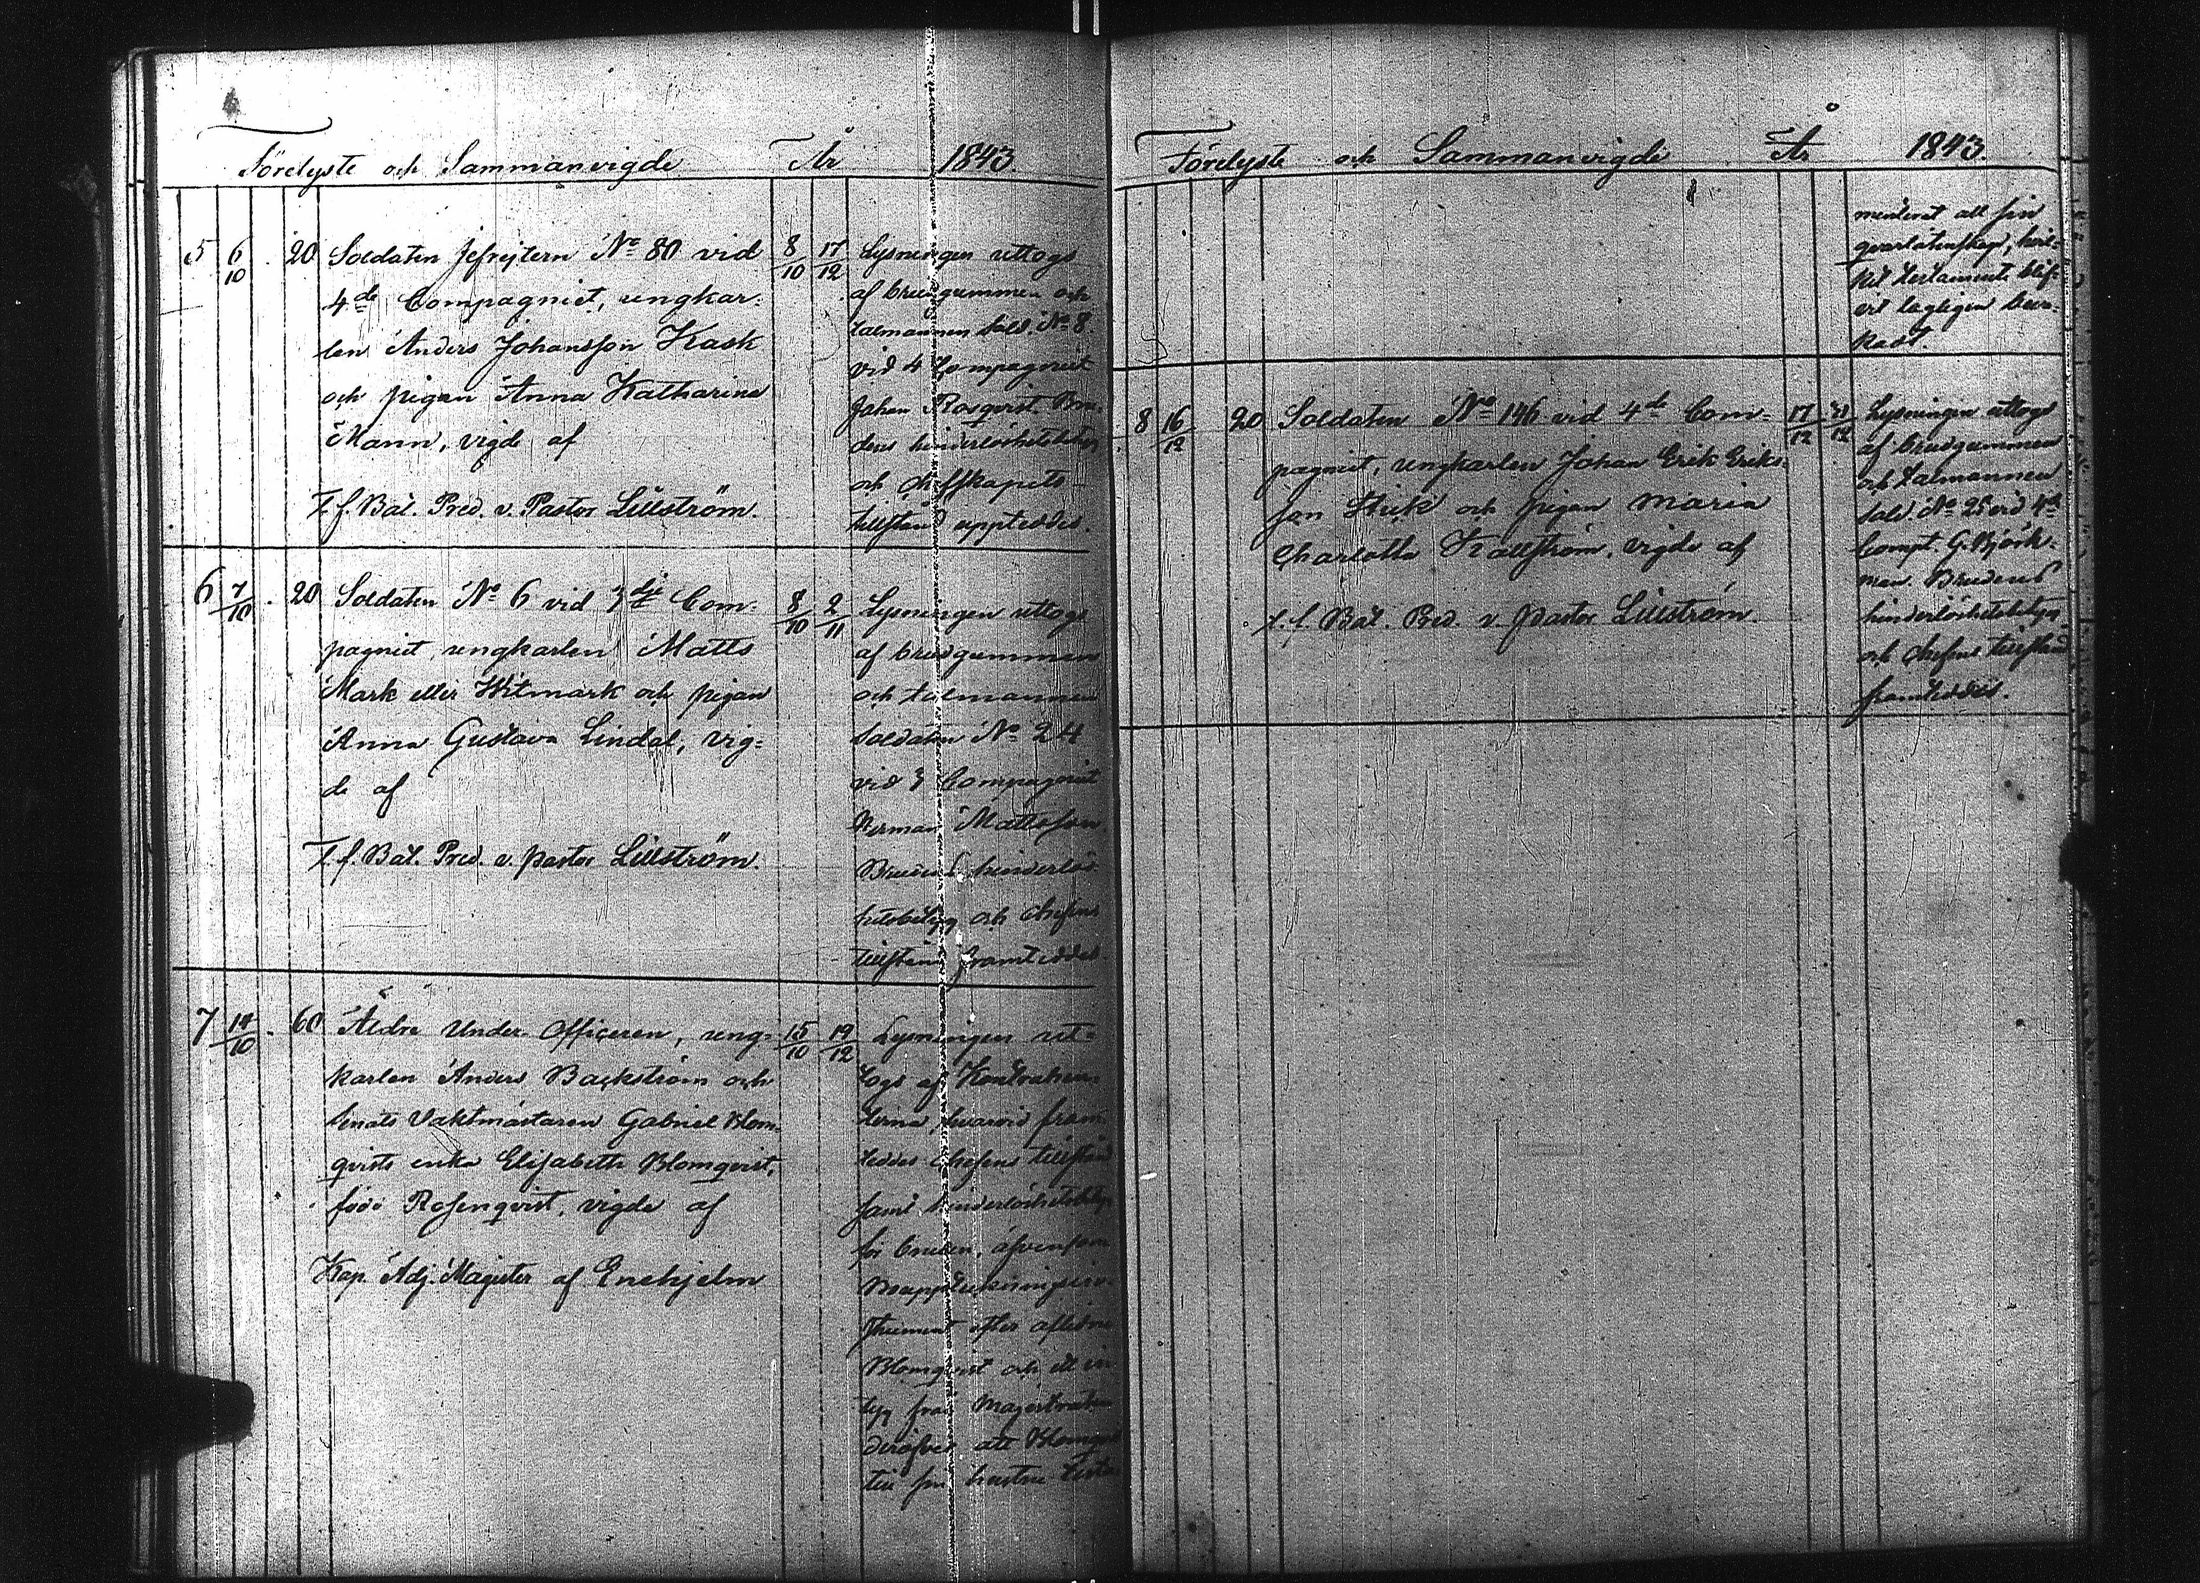 Förelyste och Sammanvigde År 1843.
5 6/10 . 20 Soldaten Jefrejtern No 80 vid 8/10 17/12
4de Compagniet, ungkar-
len Anders Johansson Kask
och pigan Anna Katharina
Mann, vigde af
T. f. Bat. Pred. v. Pastor Lillström.
Lysningen uttogs
af brudgummen och
talmannen Sold. No 8
vid 4 Compagniet
Johan Rosqvist. Bru-
dens hinderlöshetsbetyg
och cheffskapets
tillstånd uppteddes.
6 7/10 . 20 Soldaten No 6 vid 3dje Com- 8/10 2/11
pagniet, ungkarlen Matts
Mark eller Witmark och pigan
Anna Gustava Lindal, vig-
de af
T. f. Bat. Pred. v. pastor Lillström.
Lysningen uttogs
af brudgummen
och talmannen
Soldaten No 24
vid 3 Compagniet
Herman Mattsson.
Brudens hinderlös-
hetsbetyg och chefens
tillstånd framteddes.
7 14/10 . 60 Äldre Under-Officeren, ung- 15/10 19/12
karlen Anders Backström och
Senats Vaktmästaren Gabriel Blom-
qvists enka Elisabeth Blomqvist,
född Rosenqvist, vigde af
Kap. Adj. Magister af Enehjelm
Lysningen ut-
togs af Kontrahen-
terna, hvarvid fram-
teddes chefens tillstånd
samt hinderlöshetsbetyg
för bruden, äfvensom
Bouppteckningsin-
strument efter aflidne
Blomqvist och ett in-
tyg från Magistraten
deröfver att Blomqvist
till sin hustru testa-
Förelyste och Sammanvigde År 1843.
menterat all sin
qvarlåtenskap, hvil-
ket testament blif-
vit lagligen beva-
kadt.
8 16/12 20 Soldaten No 146 vid 4de Com- 17/12 /12
pagniet, ungkarlen Johan Erik Eriks-
son Stick och pigan Maria
Charlotta Källström, vigde af
t. f. Bat. Pred. v. Pastor Lillström.
Lysningen uttogs
af brudgummen
och talmannen
Sold. No 25 vid 4de
Comp. G. Björk-
man. Brudens
hinderlöshetsbetyg
och chefens tillstånd
framteddes.